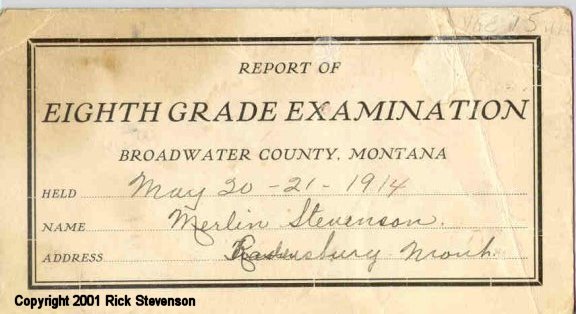 Age 15 yr
REPORT OF
EIGHTH GRADE EXAMINATION
BROADWATER COUNTY, MONTANA
HELD May 20-21-1914
NAME Merlin Stevenson.
ADDRESS Mont.
Copyright 2001 Rick Stevenson